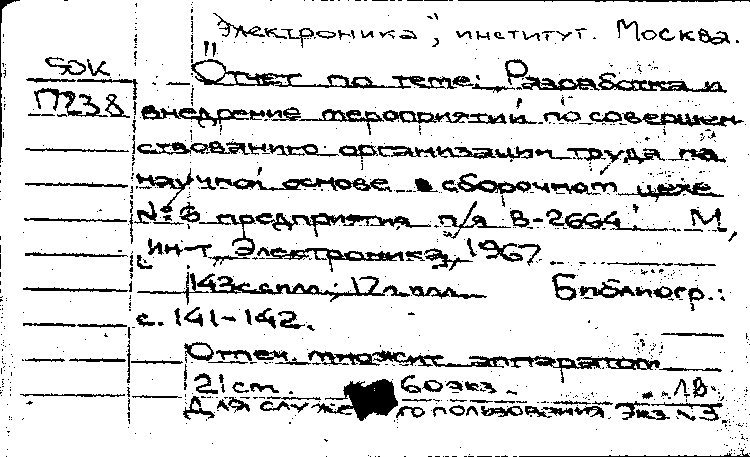 "Электроника", институт. Москва.
БОК "Отчет по теме: Разработка и
П238 внедрение мероприятий по совершен
ствованию организации труда на
научной основе в сборочном цехе
№ 8 предприятия п/я В-2664". М,
"ин-т "Электроника", 1967.
143с.илл.; 17л.илл. Библиогр.:
с. 141-142.
Отпеч. множит. аппаратом
21 см. 60экз.
Для служе го пользования Экз. № 3